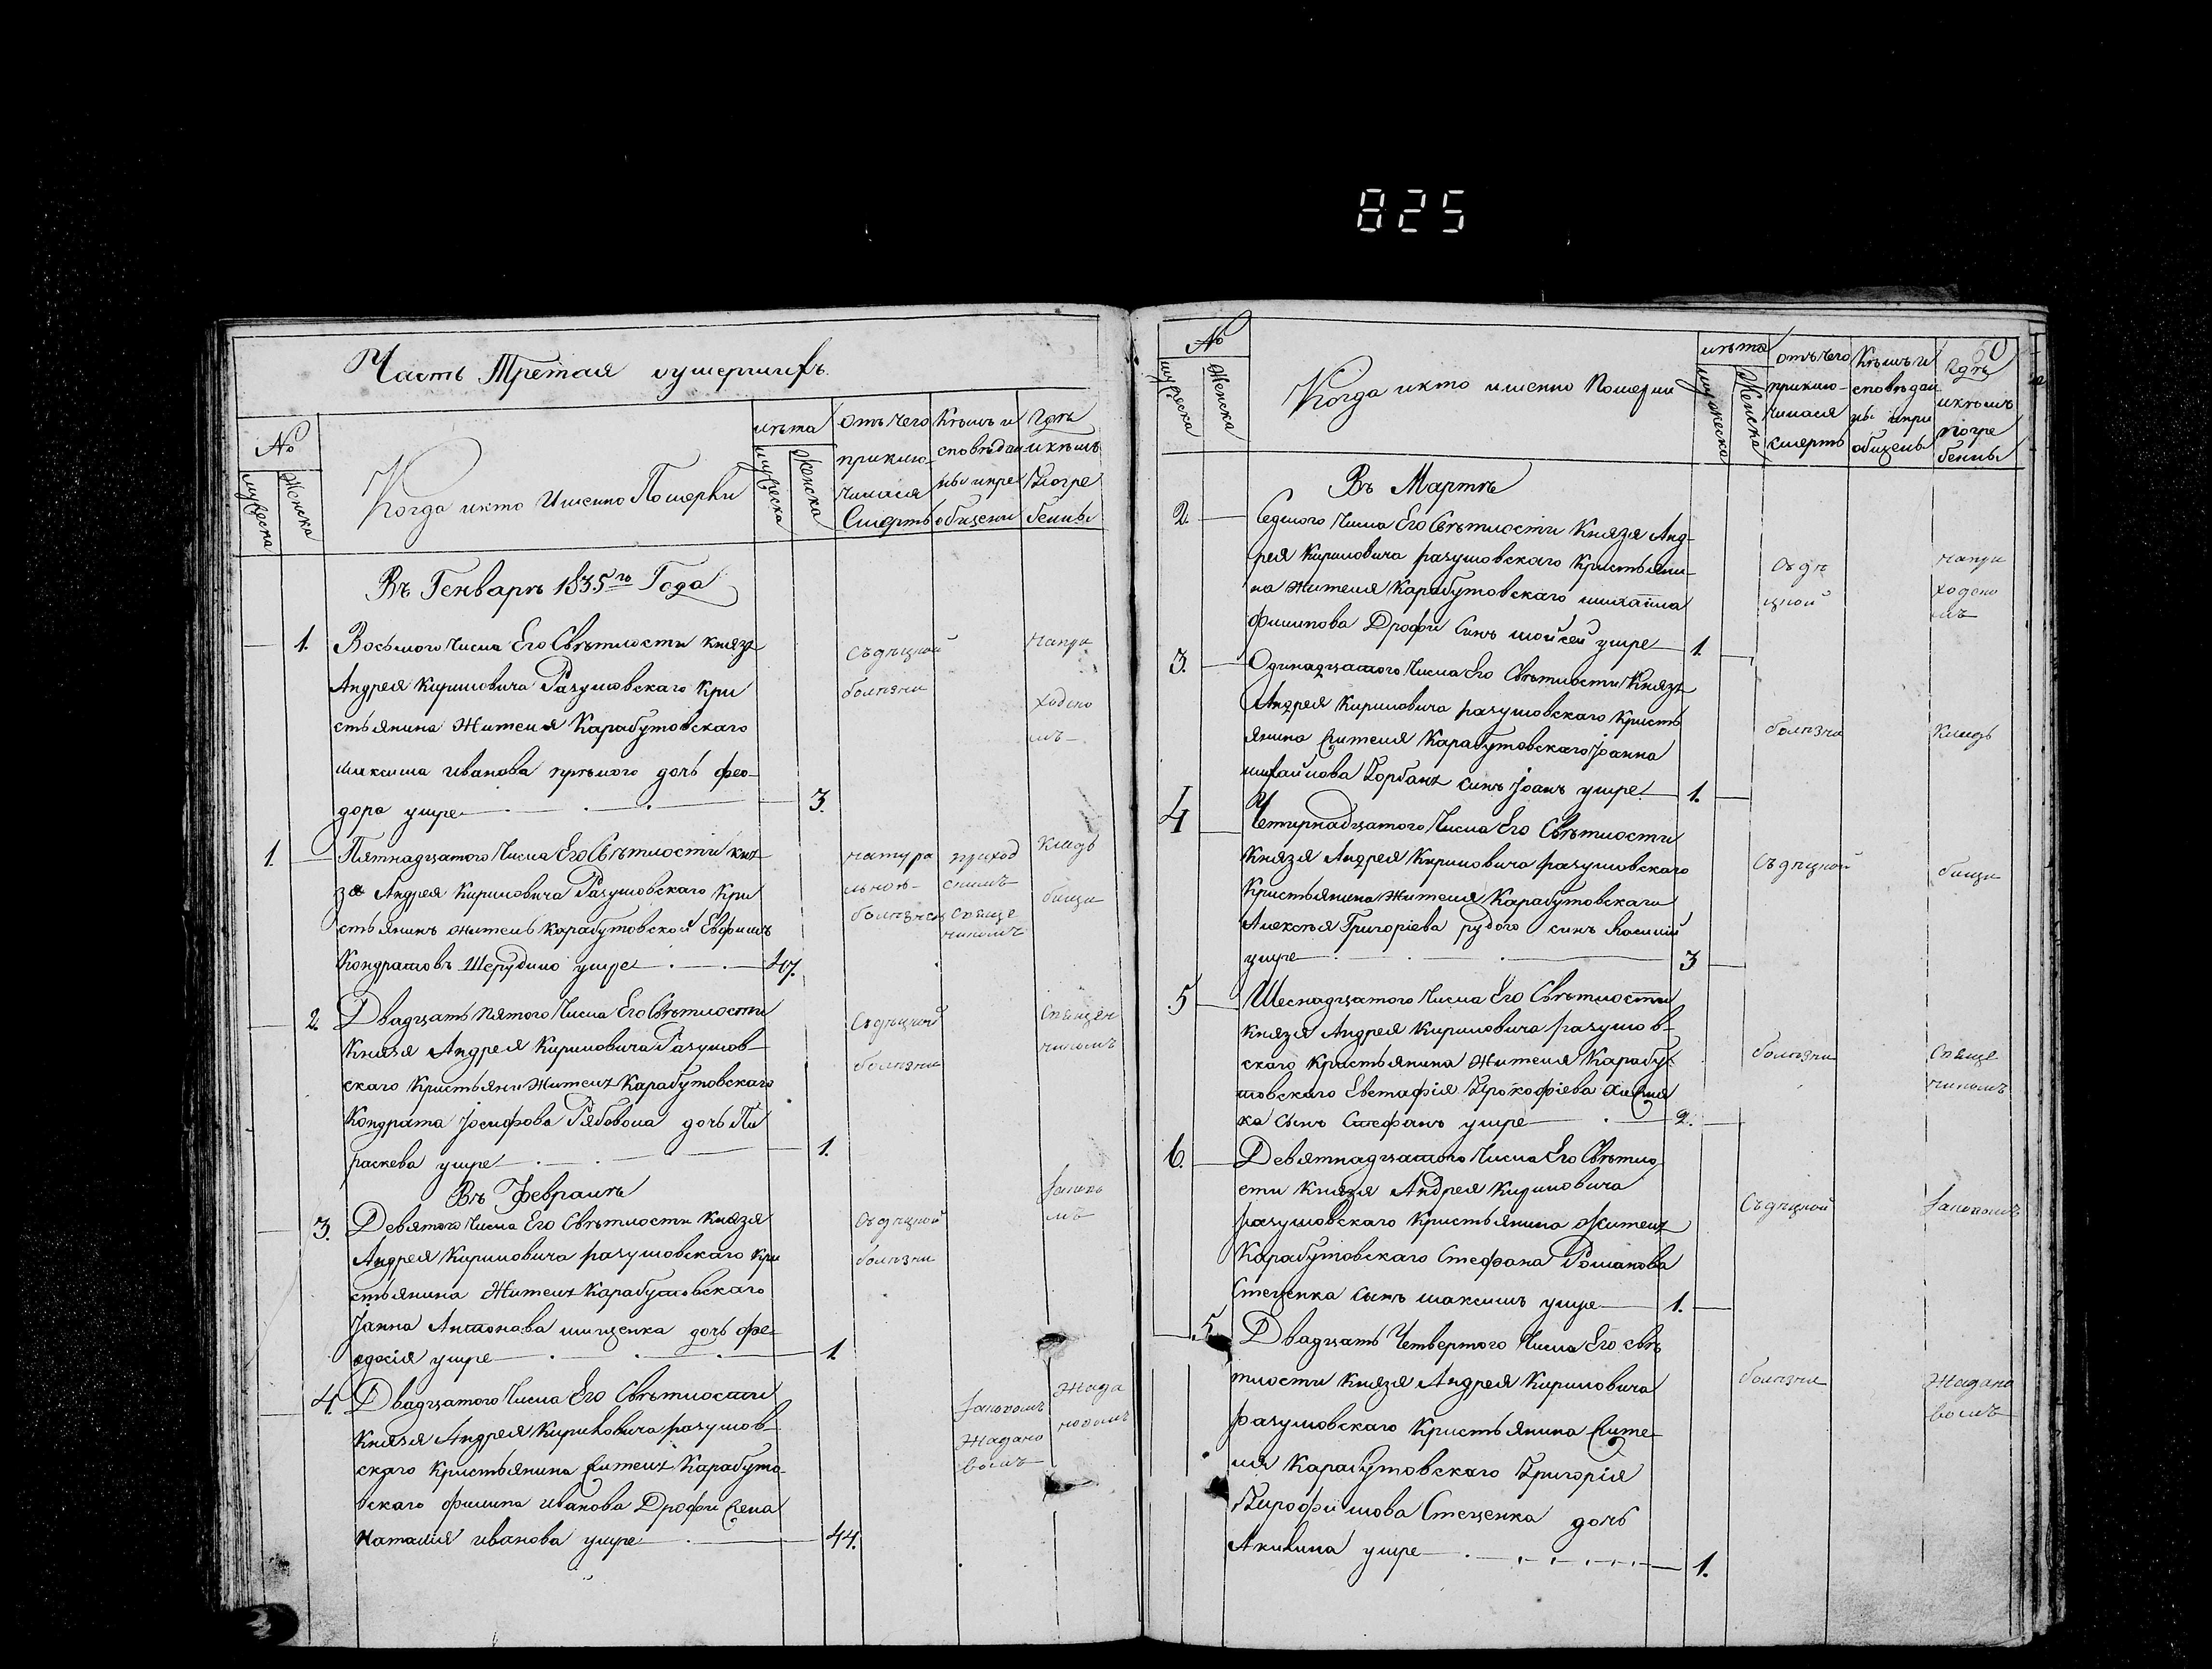 825
Часть Третая оумершихъ.
№
мужеска
Женска
Когда икто Именно Померли
лѣта
мужеска
Женска
Отъ чего
приклю-
чилася
Смерть
Кѣмъ и
сповѣдан
ны ипре
общени
Где
икѣмъ
Погре
бены
Въ Генварѣ 1835го Года
1. Восьмого Числа Его Свѣтлости князя
Андрея Кириловича Разумовскаго Кри
стьянина Жителя Карабутовскаго
Максима иванова прѣмого дочь фео-
дора умре 3.
съдѣцкой
болѣзни
наприходско
мъ
1. Пятнадцатого Числа Его Свѣтлости кня
зя Андрея Кириловича Разумовскаго Кри
стьянинъ житель Карабутовской Евфимъ
Кондратовъ Шерудило умре 47.
натура
льной
болѣзни
приход
скимъ
Свяще
никомъ
Кладъ
бищи
2. Двадцать пятого Числа Его Свѣтлости
Князя Андрея Кириловича Разумов-
скаго Кристьяни Жителя Карабутовскаго
Кондрата Јосифова Рябовола дочь Па
раскева умре 1.
Съдѣцкой
болѣзни
Священ
никомъ
Въ Февралѣ
3. Девятого Числа Его Свѣтлости Князя
Андрея Кириловича разумовскаго кри
стьянина Жителя Карабутовскаго
Јанна Антонова мищенка дочь фе-
одосія умре 1.
Съдѣцкой
болѣзни
4. Двадцатого Числа Его Свѣтлости
Князя Андрея Кириловича разумов-
скаго Кристьянина жителя Карабуто-
вскаго филипа иванова Дрофи жена
Наталія иванова умре 44.
Жадано
вомъ
№
мужеска
Женска
Когда икто именно Померли
лѣта
мужеска
Женска
отъ чего
приклю-
чилася
смерть
Кѣмъ и
сповѣдан
ны ипри
общены
60
Где
икѣмъ
погре
бенны
Въ Мартѣ
2. Седмого Числа Его Свѣтлости Князя Анд-
рея Кириловича разумовскаго Кристьяни-
на Жителя Карабутовскаго михаила
филипова Дрофи Синъ мойсей умре 1.
съдѣ
цкой
напри
ходско
мъ
3. Одинадцатого Числа Его Свѣтлости Князя
Андрея Кириловича разумовскаго Кристь
янина жителя Карабутовскаго Јоанна
михайлова Горбаня синъ Јоанъ умре 1.
болѣзни
Кладъ
4 Четирнадцатого Числа Его Свѣтлости
Князя Андрея Кириловича разумовскаго
Кристьянина Жителя Карабутовскаго
Алексѣя Григоріева рудого синъ Василий
умре 3
Съдѣцкой
бищи
5 Шеснадцатого Числа Его Свѣтлости
Князя Андрея Кириловича разумов-
скаго Кристьянина Жителя Карабу-
товскаго Евстафія Прокофіева
ка Сынъ Стефанъ умре 2.
болѣзни
Свяще
никомъ
6. Девятнадцатого Числа Его Свѣтло
сти Князя Андрея Кириловича
разумовскаго Кристьянина Жителя
Карабутовскаго Стефана Романова
Стеценка Сынъ максимъ умре 1.
Съдѣцкой
5. Двадцать Четвертого Числа Его свѣ
тлости Князя Андрея Кириловича
разумовскаго Кристьянина жите-
ля Карабутовскаго Григорія
Стеценка дочь
Акилина умре 1.
болѣзни
Жадано
вомъ